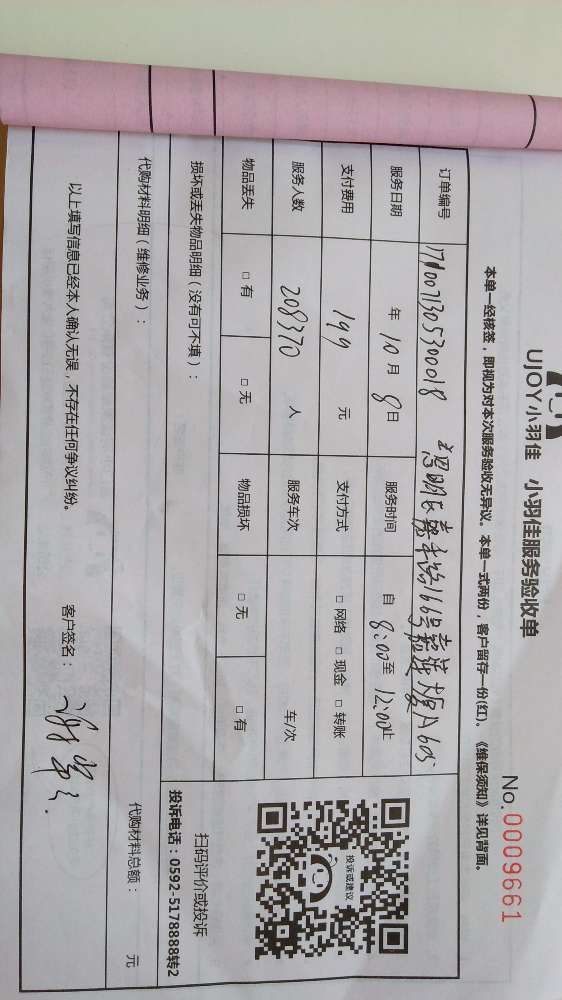 UJOY小羽佳 小羽佳服务验收单
No.0009661
本单一经核签，即视为对本次服务验收无异议。本单一式两份，客户留存一份(红)。《维保须知》详见背面。
订单编号 1710071305300018 思明区 路166号 大厦A605
服务日期 年10月8日 服务时间 自8:00至12:00止
支付费用 199 元 支付方式 □网络 □现金 □转账
服务人数 208370 人 服务车次 车/次
物品丢失 □有 □无 物品损坏 □无 □有
投诉或建议
扫码评价或投诉
投诉电话：0592-5178888转2
损坏或丢失物品明细（没有可不填）：
代购材料明细（维修业务）： 代购材料总额： 元
以上填写信息已经本人确认无误，不存在任何争议纠纷。 客户签名：